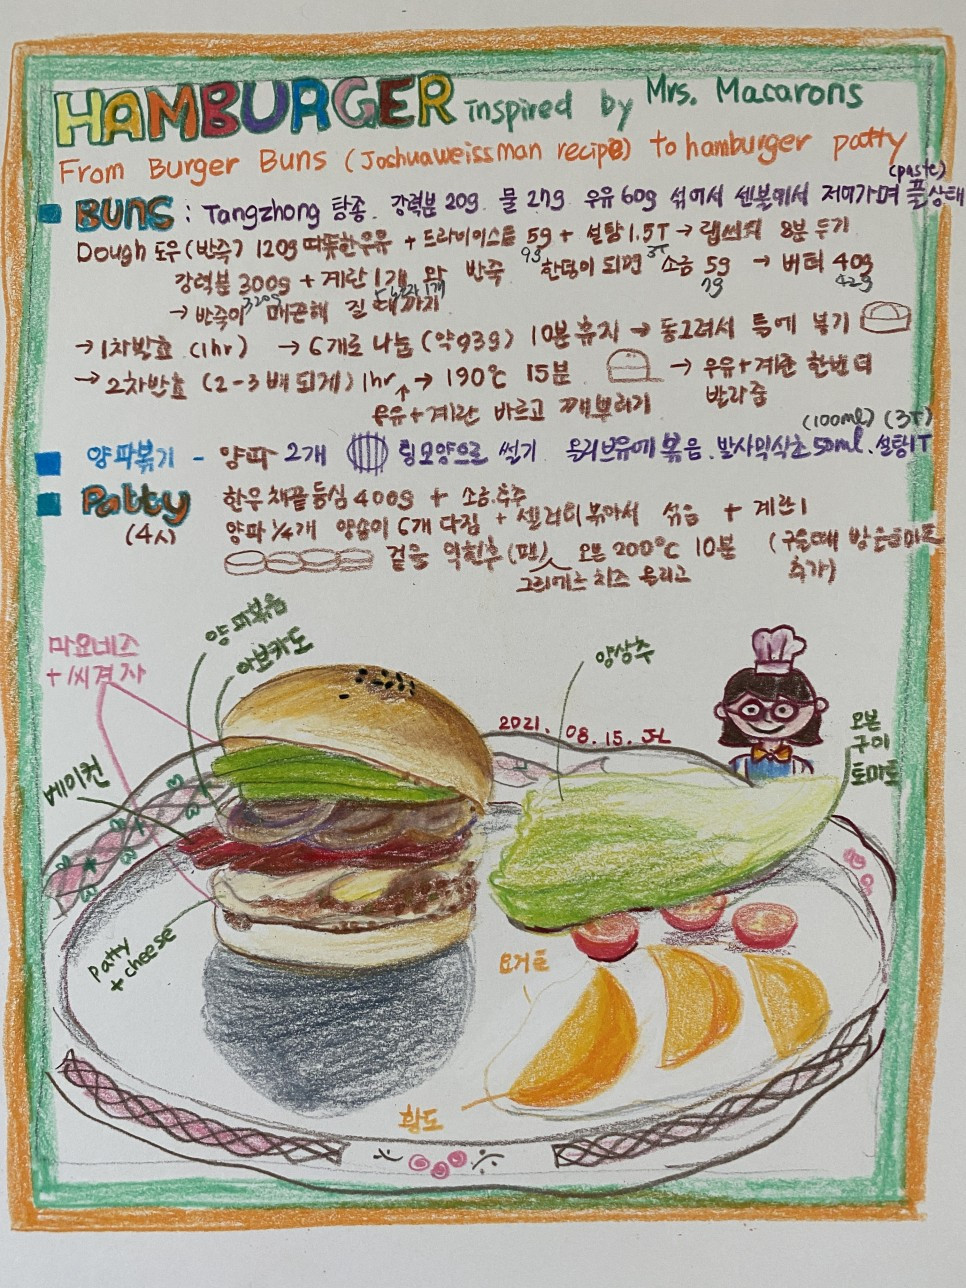 HAMBURGER inspired by Mrs. Macarons
From Burger Buns (Joshuaweissman recipe) to hamburger patty
(paste)
BUNS : Tangzhong 탕종. 강력분 20g 물 27g 우유 60g 섞어서 센불에서 저어가며 풀상태
Dough 도우 (반죽) 120g 따뜻한우유 + 드라이이스트 5g + 설탕 1.5T → 랩씌워 8분 두기
9g 3T
강력분 300g + 계란 1개 반죽 한덩이 되면 소금 5g → 버터 40g
320g 7g 42g
→ 반죽이 매끈해 질 때까지
→ 1차발효 (1hr) → 6개로 나눔 (약93g) 10분 휴지 → 동그려서 틀에 놓기
→ 2차발효 (2-3배 되게) 1hr → 190℃ 15분 → 우유+계란 한번 더
발라줌
우유+계란 바르고 깨뿌리기
(100ml) (3T)
양파볶기 - 양파 2개 링모양으로 썰기 올리브유에 볶음. 발사믹식초 50ml. 설탕1T
Patty 한우 채끝등심 400g + 소금.후추
(4人) 양파 1/4개 양송이 6개 다짐 + 셀러리 볶아서 섞음 + 계란1
겉을 익힌후 (팬) 오븐 200℃ 10분 (구울때 방울토마토
그뤼에르 치즈 올리고 추가)
양파볶음
마요네즈
+ 씨겨자
아보카도
양상추
2021. 08. 15. J-L
오븐
구이
토마토
베이컨
patty
+ cheese
요거트
황도